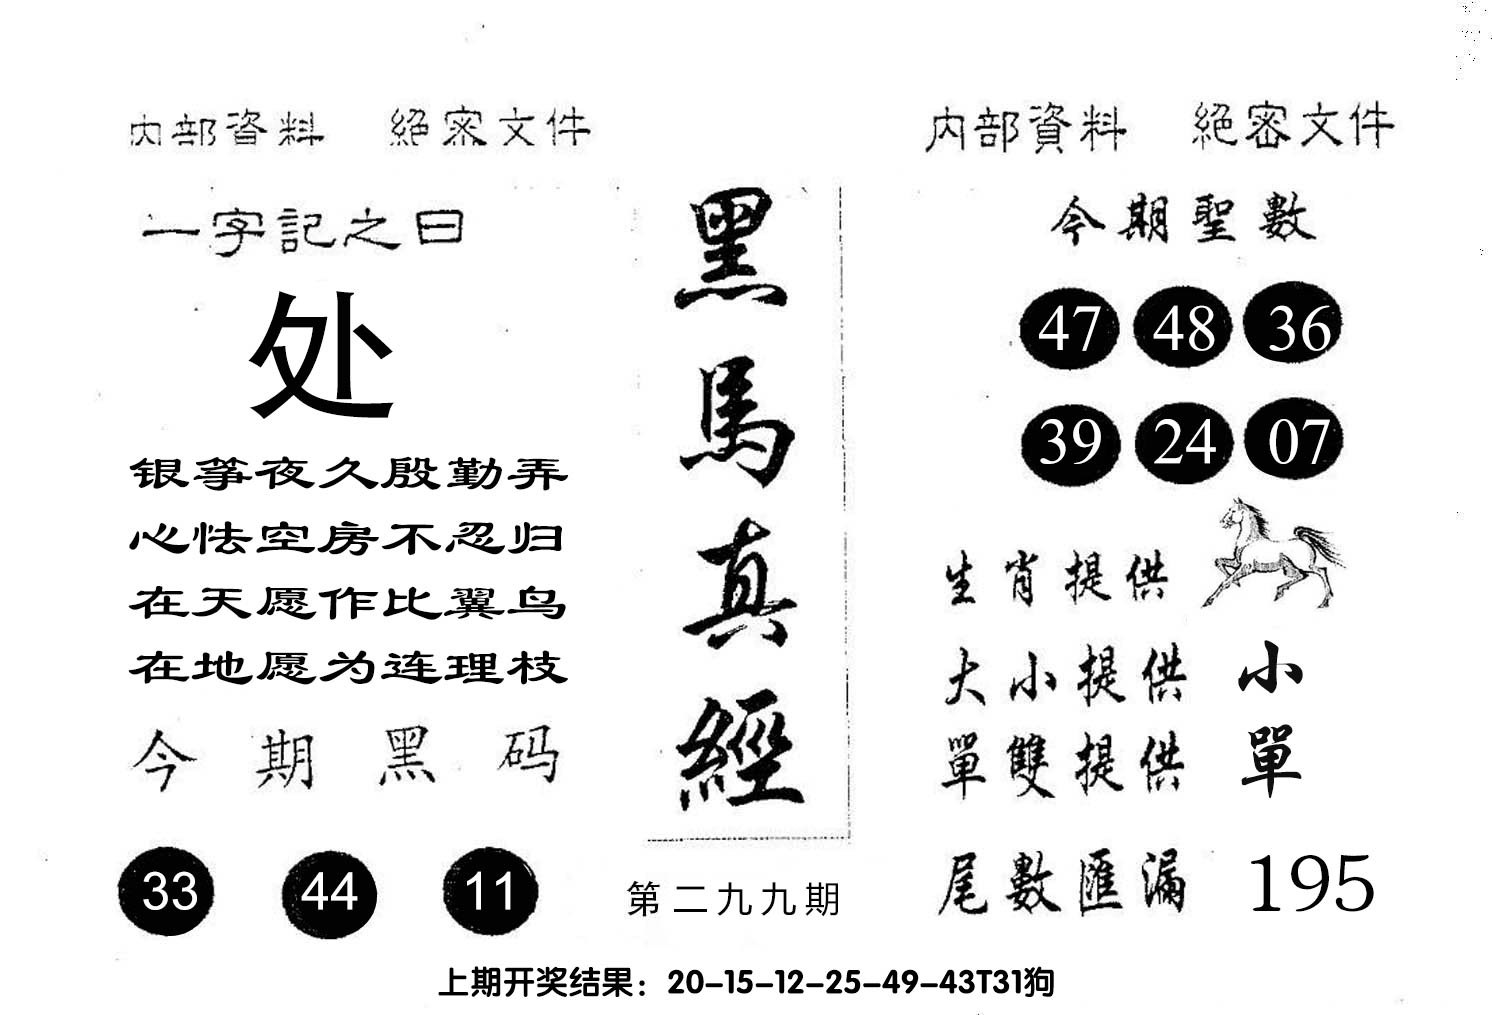 内部資料 絕密文件
一字記之曰
处
银筝夜久殷勤弄
心怯空房不忍归
在天愿作比翼鸟
在地愿为连理枝
今期黑码
33 44 11
黑馬真經
第二九九期
内部資料 絕密文件
今期聖數
47 48 36
39 24 07
生肖提供
大小提供 小
單雙提供 單
尾數匯漏 195
上期开奖结果：20-15-12-25-49-43T31狗